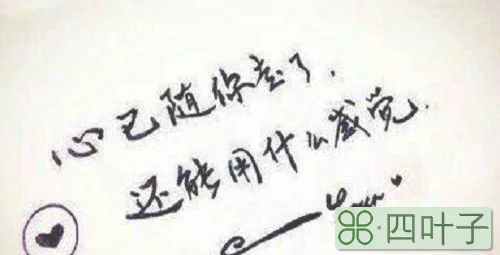 心已随你走了.
还能用什么感觉.
四叶子